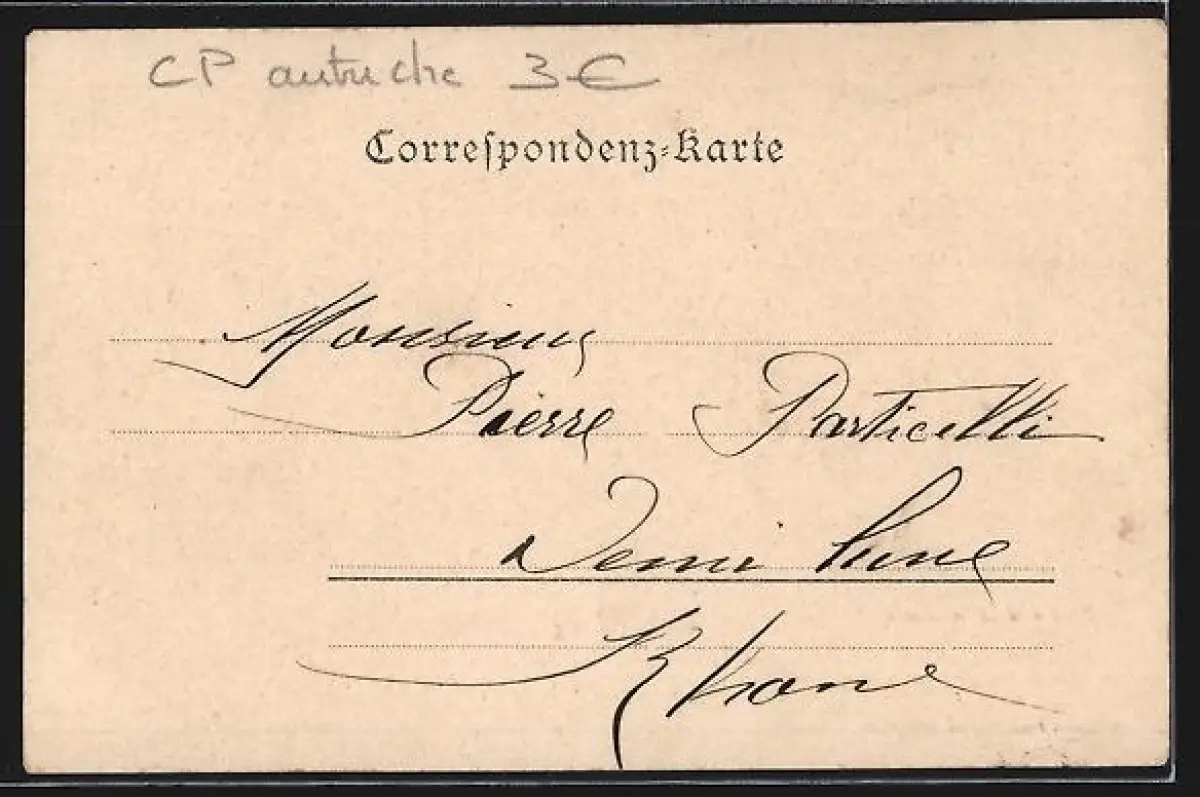 CP autriche 3 €
Correſpondenz-Karte
Monsieur
Pierre Particelli
Demi Lune
Rhone